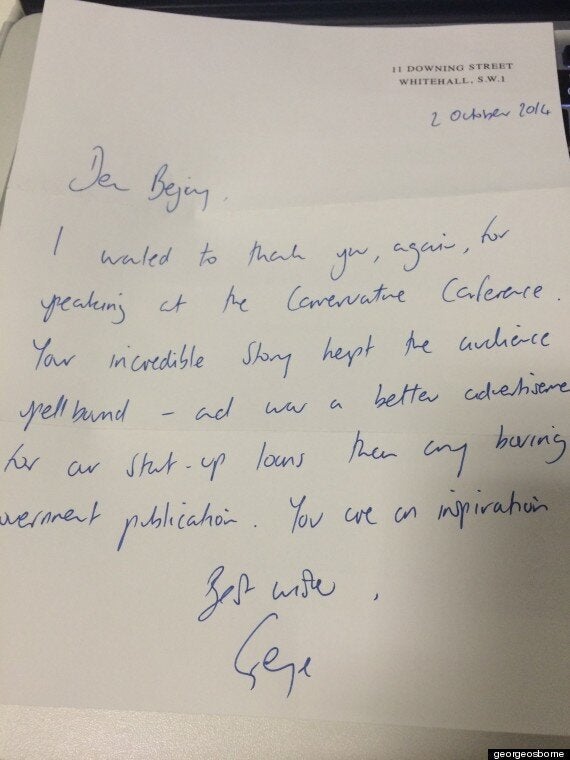 11 DOWNING STREET
WHITEHALL, S.W.1
2 October 2014
Dear Bejay,
I wanted to thank you, again, for
speaking at the Conservative Conference.
Your incredible story kept the audience
spellbound – and was a better advertiseme
for our start-up loans than any boring
overnment publication. You are an inspiration
Best wishes,
George
georgeosborne